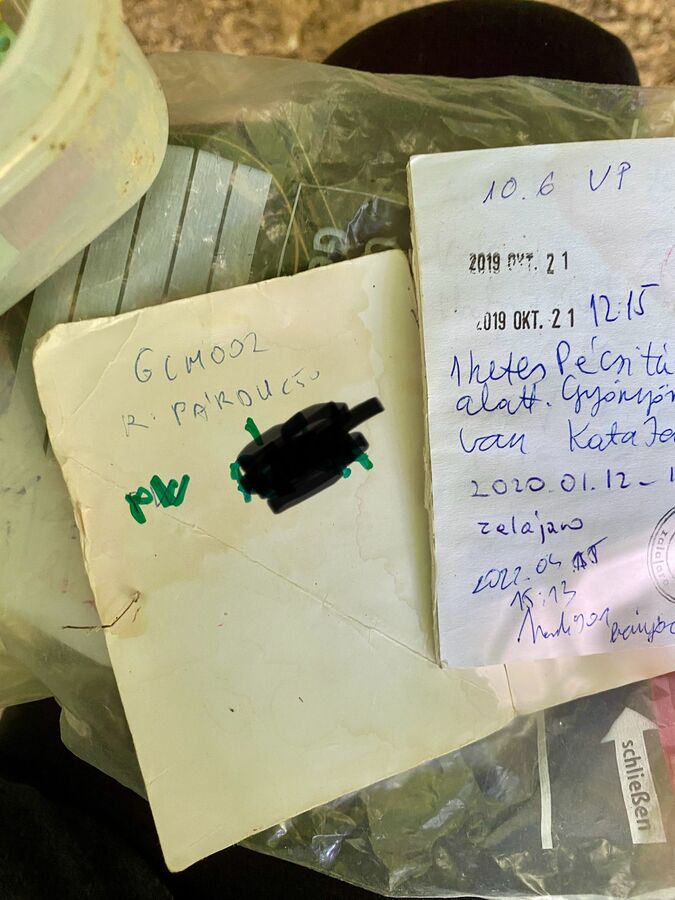 GCM002
R. PÁRDUCZ
pw
10. 6 VP
2019 OKT. 21
2019 OKT. 21 12:15
1 hetes Pécsi tú
alatt. Gyönyör
van Kata Ja
2020.01.12 -
zalajaro
2022.04
15:13
zalajaro
schließen